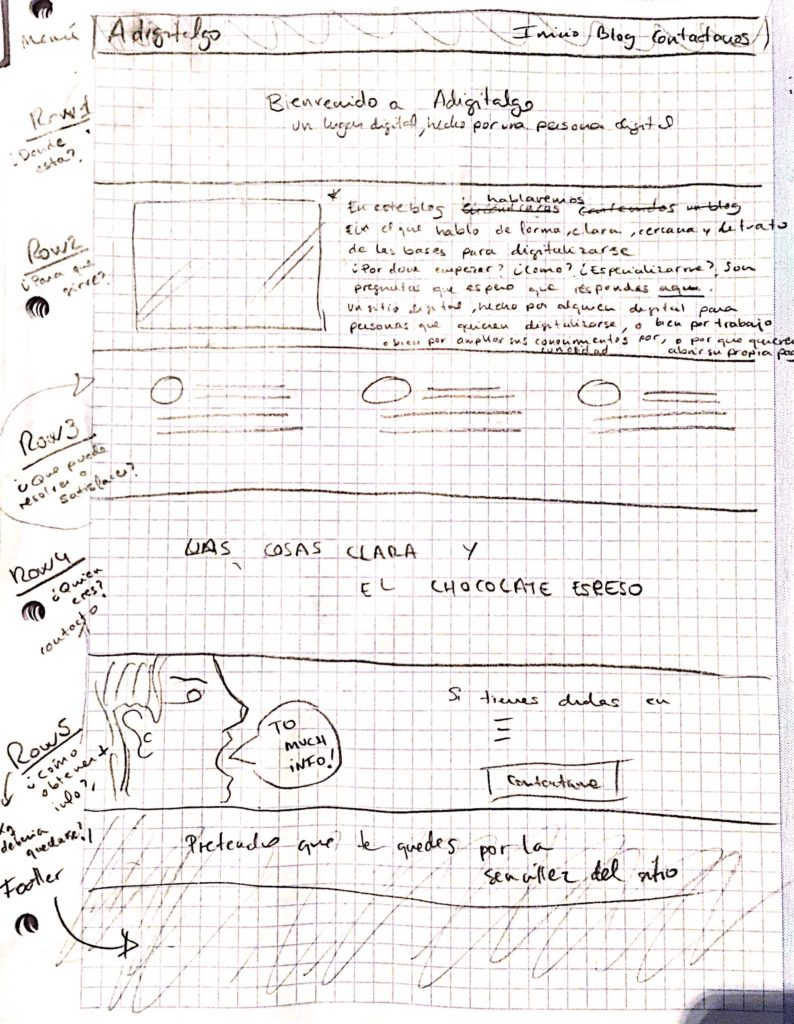 Menú
Adigitalgo
Inicio Blog Contactanos
Row1
¿Donde
esta?
Bienvenido a Adigitalgo
un lugar digital, hecho por una persona digital
Row2
¿Para que
sirve?
hablaremos
En este blog contenidos un blog
En el que hablo de forma, clara, cercana y
de las bases para digitalizarse
¿Por donde empezar? ¿Como? ¿Especializarme?, Son
preguntas que espero que respondas aquí.
Un sitio digital, hecho por alguien digital para
personas que quieren digitalizarse, o bien por trabajo
o bien por ampliar sus conocimientos por, o por que quieren
curiosidad abrir su propia pag
Row3
¿Que puede
resolver o
satisfacer?
Row4
¿Quien
eres?
contacto!
LAS COSAS CLARA Y
EL CHOCOLATE ESPESO
Row5
¿Como
obtener +
info?,
TO
MUCH
iNFO!
Si tienes dudas en
Contactame
debería
quedarse?
Pretendo que te quedes por la
sencillez del sitio
Footler